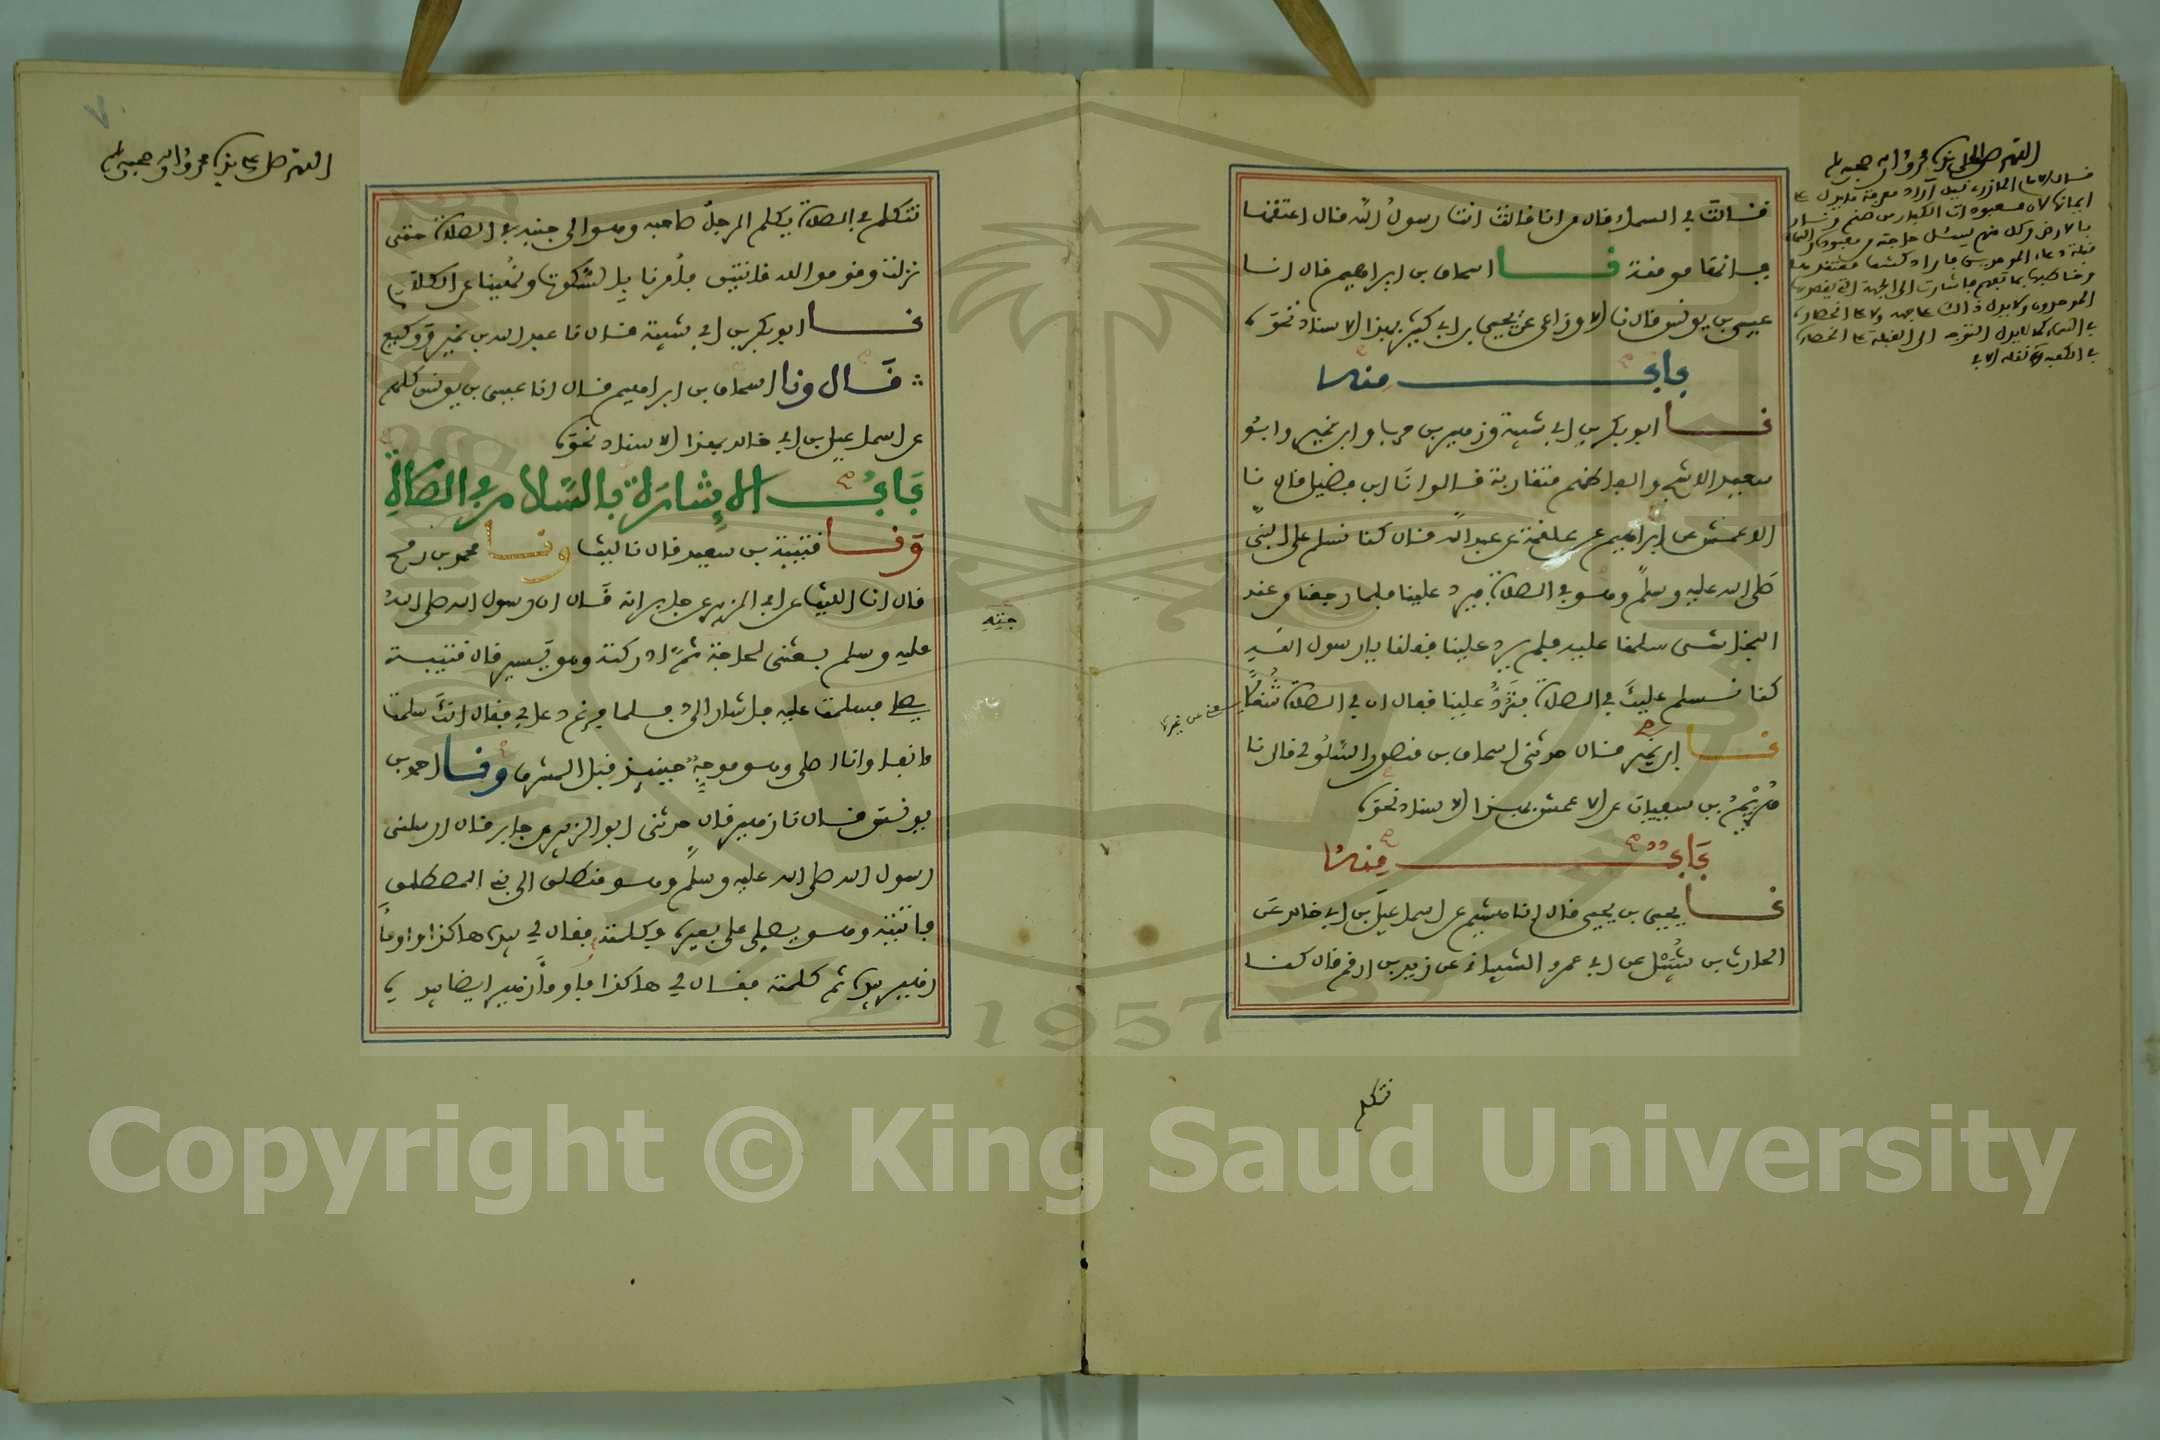 قالت في السماء قال من انا قالت انت رسول الله قال اعتقها
فإنها مومنة نا اسحاق بن ابراهيم قال انا
عيسى بن يونس قال نا الاوزاعي عن يحيى بن ابي كثير بهذا الاسناد نحوه
باب منه
نا ابو بكر بن ابي شيبة وزهير بن حرب وابن نمير وابو
سعيد الاشج والفاظهم متقاربة قالوا نا ابن فضيل قال نا
الاعمش عن ابراهيم عن علقمة عن عبد الله قال كنا نسلم على النبي
صلى الله عليه وسلم وهو في الصلاة فيرد علينا فلما رجعنا من عند
النجاشي سلمنا عليه فلم يرد علينا فقلنا يا رسول الله
كنا نسلم عليك في الصلاة فترد علينا فقال ان في الصلاة شغلا
نا ابن نمير قال حدثني اسحاق بن منصور السلولي قال نا
هريم بن سفيان عن الاعمش بهذا الاسناد نحوه
باب منه
نا يحيى بن يحيى قال انا هشيم عن اسماعيل بن ابي خالد عن
الحارث بن شبيل عن ابي عمرو الشيباني عن زيد بن ارقم قال كنا
نتكلم
٧
نتكلم في الصلاة يكلم الرجل صاحبه وهو الى جنبه في الصلاة حتى
نزلت وقوموا لله قانتين فأمرنا بالسكوت ونهينا عن الكلام
نا ابو بكر بن ابي شيبة قال نا عبد الله بن نمير ووكيع
قال ونا اسحاق بن ابراهيم قال انا عيسى بن يونس كلهم
عن اسماعيل بن ابي خالد بهذا الاسناد نحوه
باب الإشارة بالسلام في الصلاة
ونا قتيبة بن سعيد قال نا ليث ونا محمد بن رمح
قال انا الليث عن ابي الزبير عن جابر انه قال ان رسول الله صلى الله
عليه وسلم بعثني لحاجة ثم ادركته وهو يسير قال قتيبة
يصلي فسلمت عليه فاشار الي فلما فرغ دعاني فقال انك سلمت
ءانفا وانا اصلي وهو موجه حينئذ قبل المشرق ونا احمد بن
يونس قال نا زهير قال حدثني ابو الزبير عن جابر قال ارسلني
رسول الله صلى الله عليه وسلم وهو منطلق الى بني المصطلق
فاتيته وهو يصلي على بعيره فكلمته فقال لي بيده هاكذا واوما
زهير بيده ثم كلمته فقال لي هاكذا فاومأ زهير ايضا بيده
Copyright © King Saud University
1957